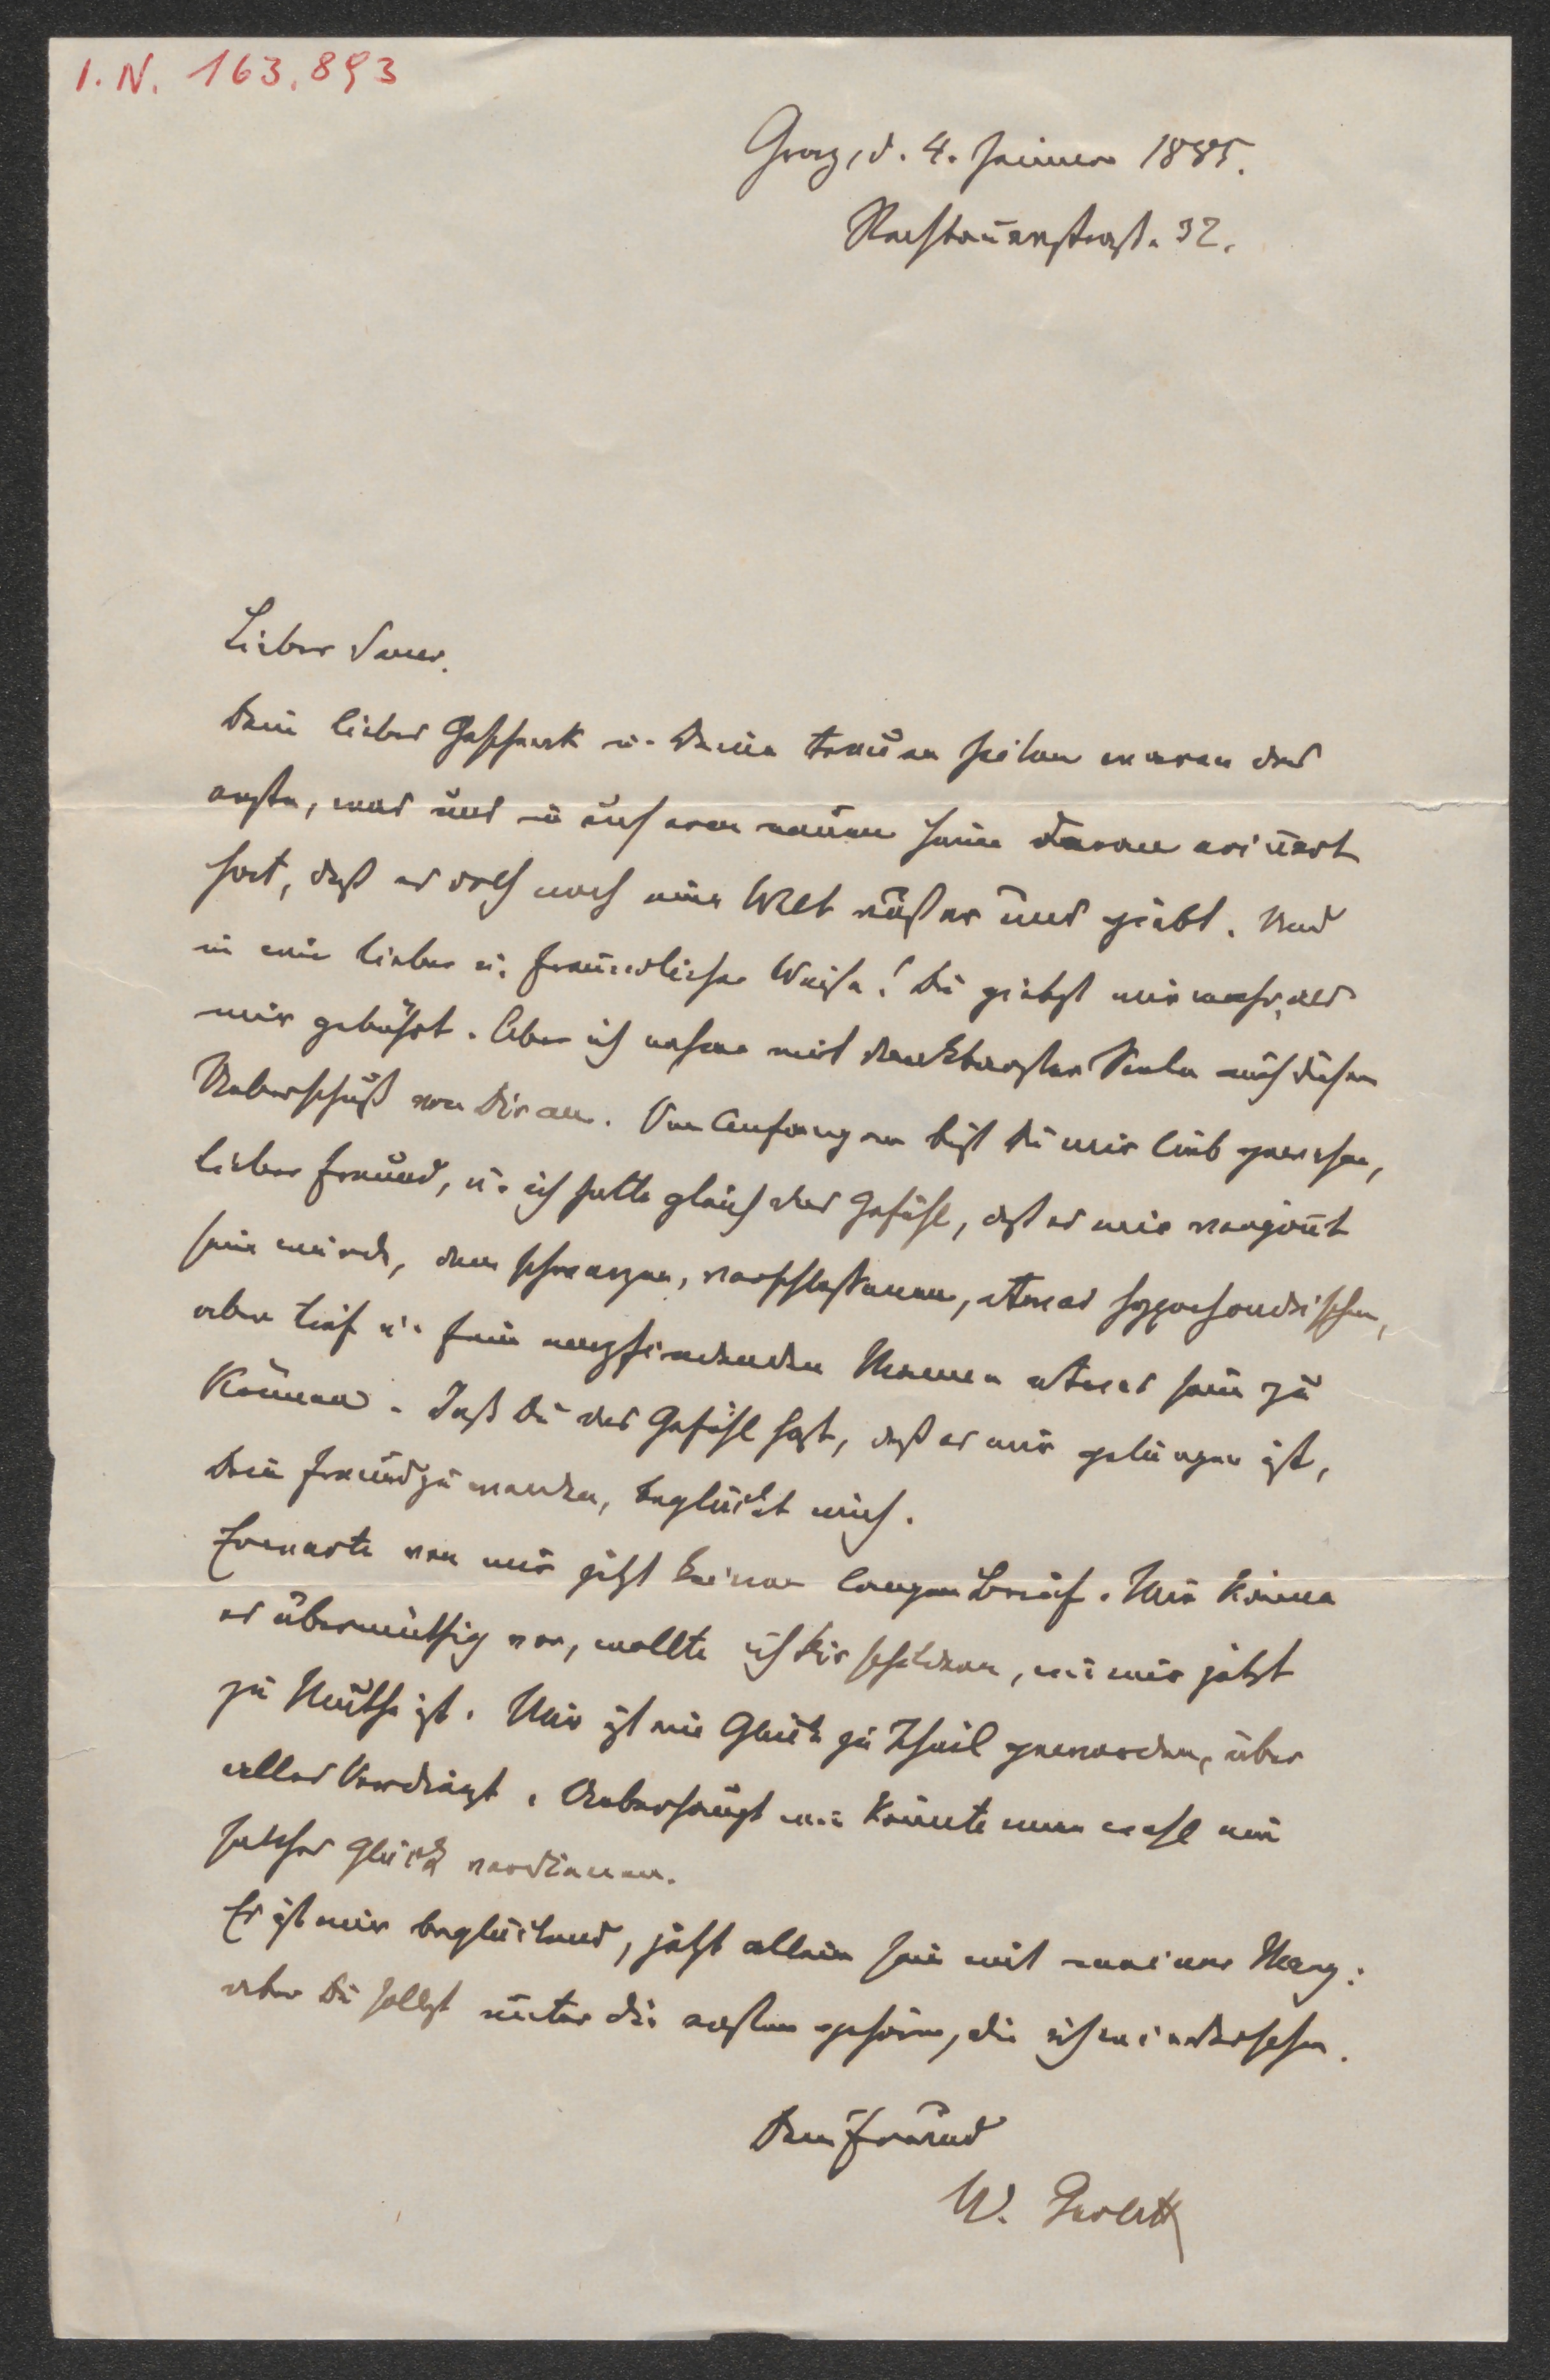 I. N. 163.893
Graz, d. 4. Jänner 1885.
Rechbauerstraße 32.
Lieber Sauer.
Dein liebes Geschenk u. Deine treuen Zeilen waren das
erste, was uns in unserem neuen Heim daran erinnert
hat, daß es doch noch eine Welt außer uns giebt. Und
in wie lieber u. freundlicher Weise! Du giebst mir mehr, als
mir gebührt. Aber ich nehme mit dankbarster Seele auch diesen
Ueberschuß von Dir an. Von Anfang an bist Du mir lieb gewesen,
lieber Freund, u. ich hatte gleich das Gefühl, daß es mir vergönnt
sein würde, dem schwarzen, verschlossenen, etwas hypochondrischen,
aber tief u. fein empfindenden Manne etwas sein zu
können. Daß Du das Gefühl hast, daß es mir gelungen ist,
Dein Freund zu werden, beglückt mich.
Erwarte von mir jetzt keinen langen Brief. Mir käme
es übermüthig vor, wollte ich Dir schildern, wie mir jetzt
zu Muthe ist. Mir ist ein Glück zu Theil geworden, über
alles Verdienst. Ueberhaupt wie könnte man wohl ein
solches Glück verdienen.
Es ist mir beglückend, jetzt allein sein mit meiner
aber Du sollst unter die ersten gehören, die ich wiedersehe.
Dein Freund
W. Gurlitt